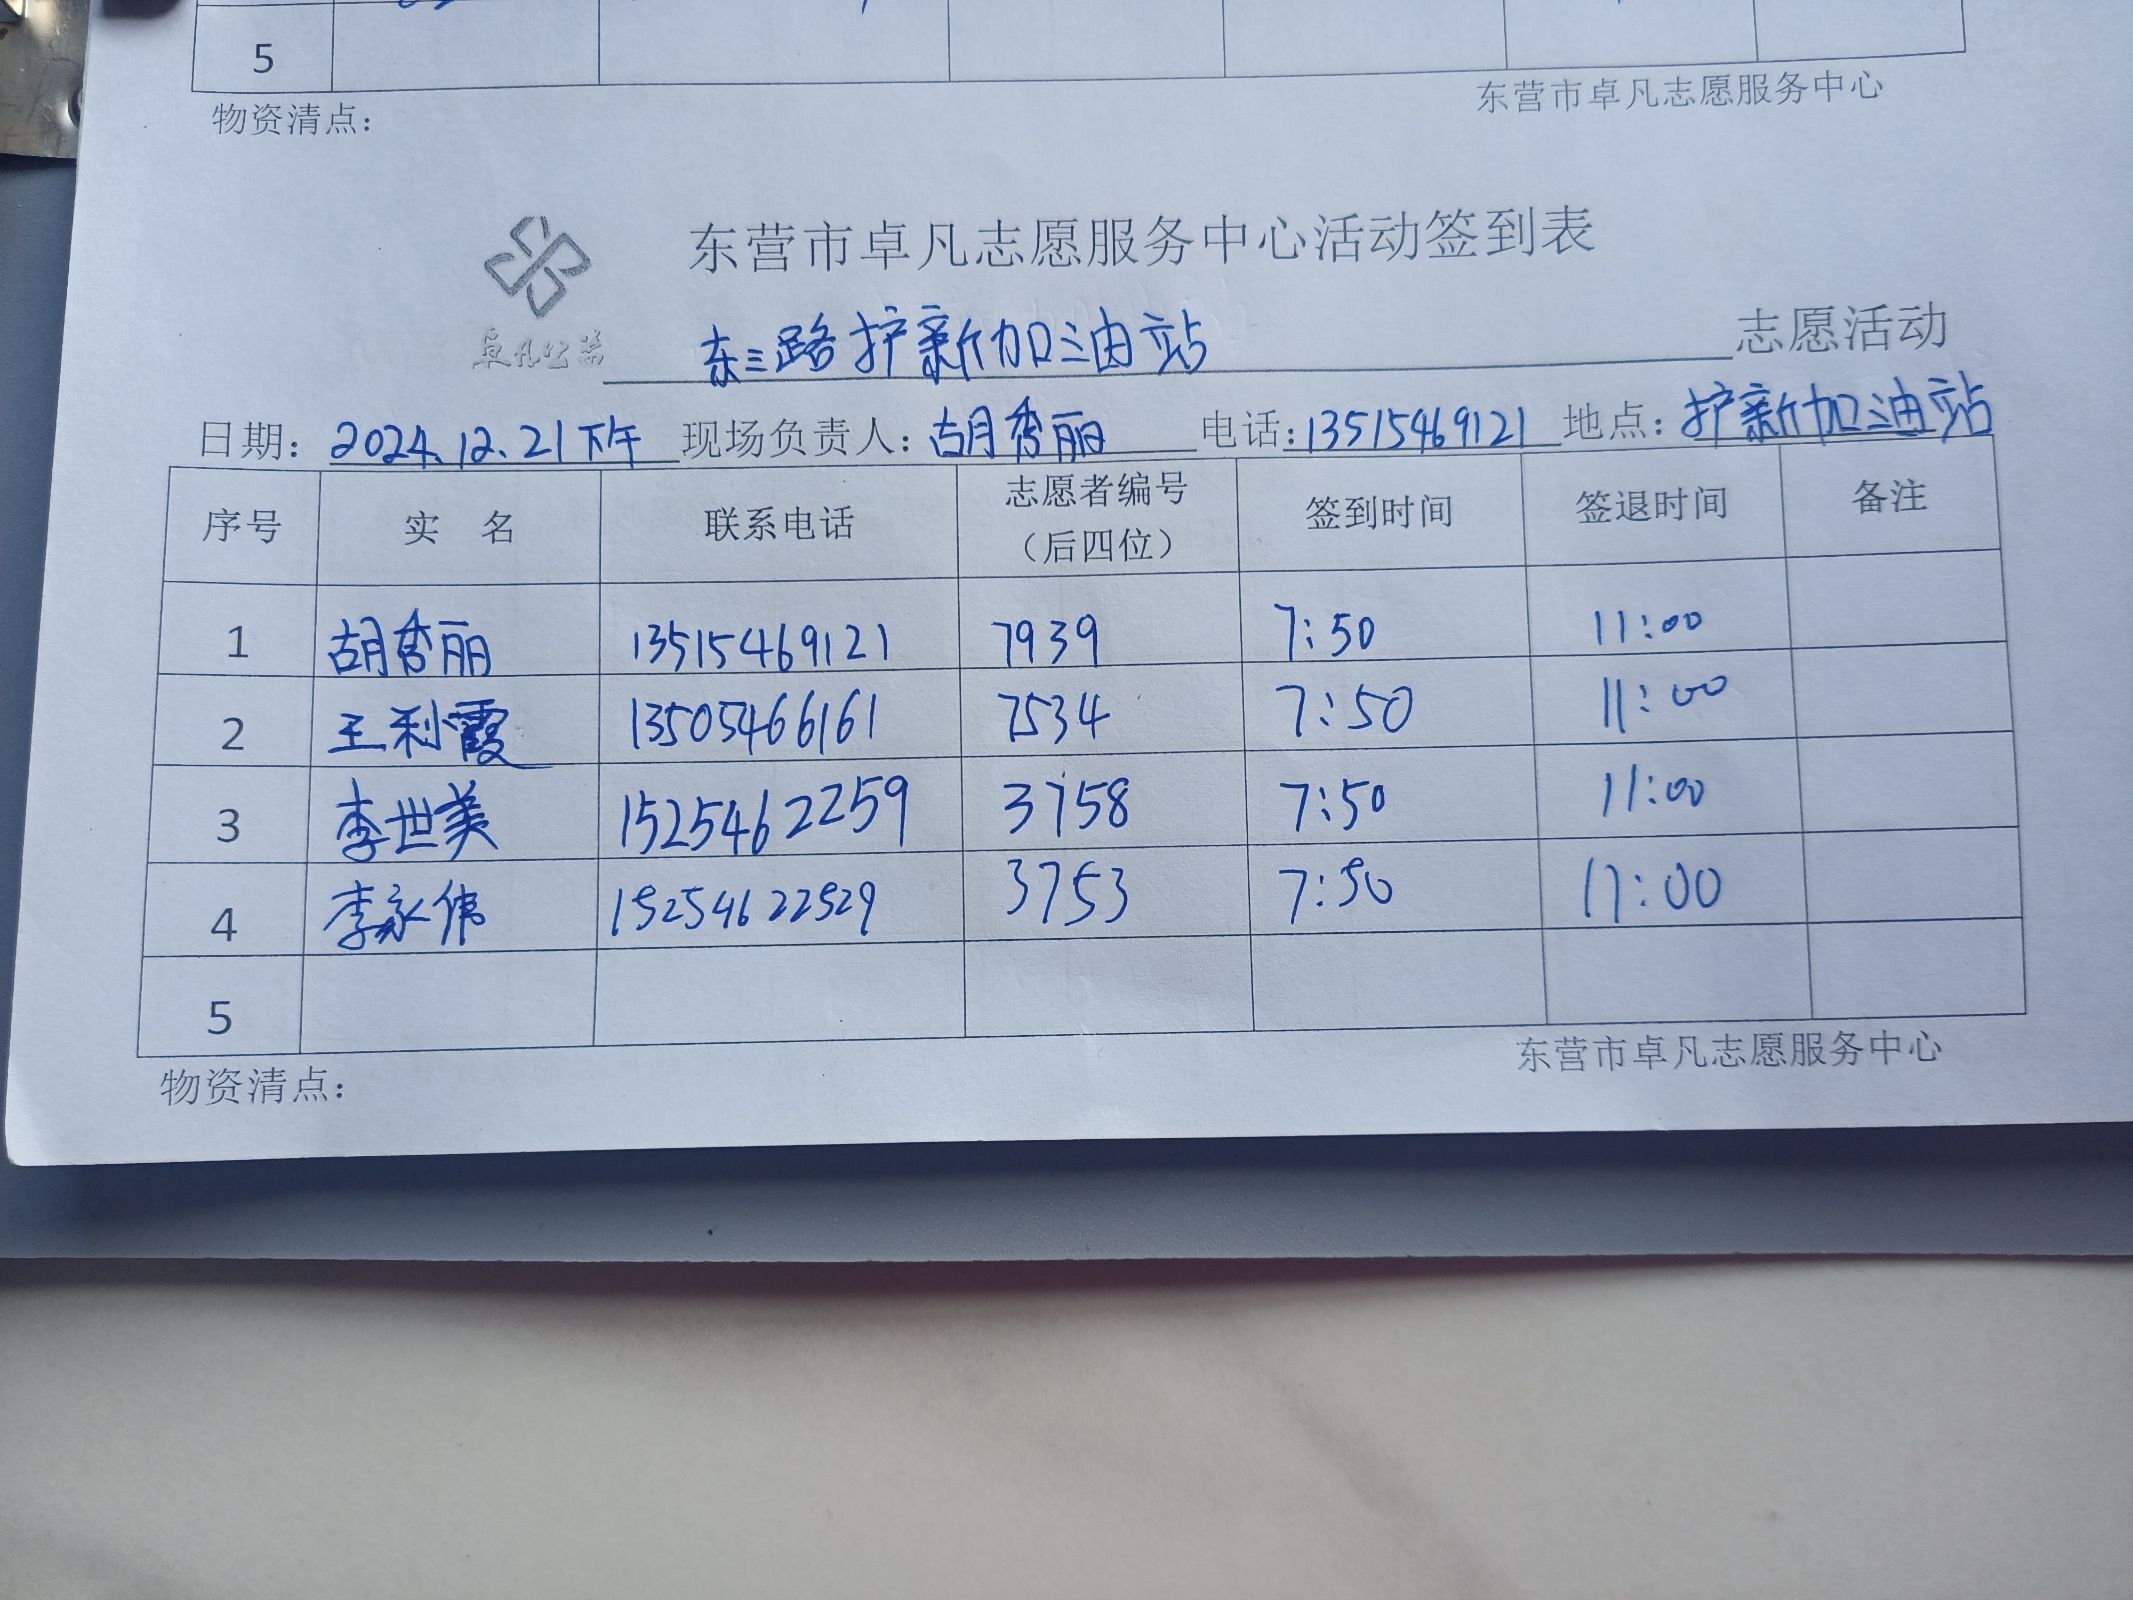 5
物资清点：
东营市卓凡志愿服务中心
东营市卓凡志愿服务中心活动签到表
卓凡公益
东三路护新加油站 志愿活动
日期：2024.12.21下午 现场负责人：胡秀丽 电话：13515469121 地点：护新加油站
序号 实 名 联系电话 志愿者编号（后四位） 签到时间 签退时间 备注
1 胡秀丽 13515469121 7939 7:50 11:00
2 王利霞 13505466161 7534 7:50 11:00
3 李世美 15254622259 3758 7:50 11:00
4 李永伟 15254622529 3753 7:50 17:00
5
东营市卓凡志愿服务中心
物资清点：